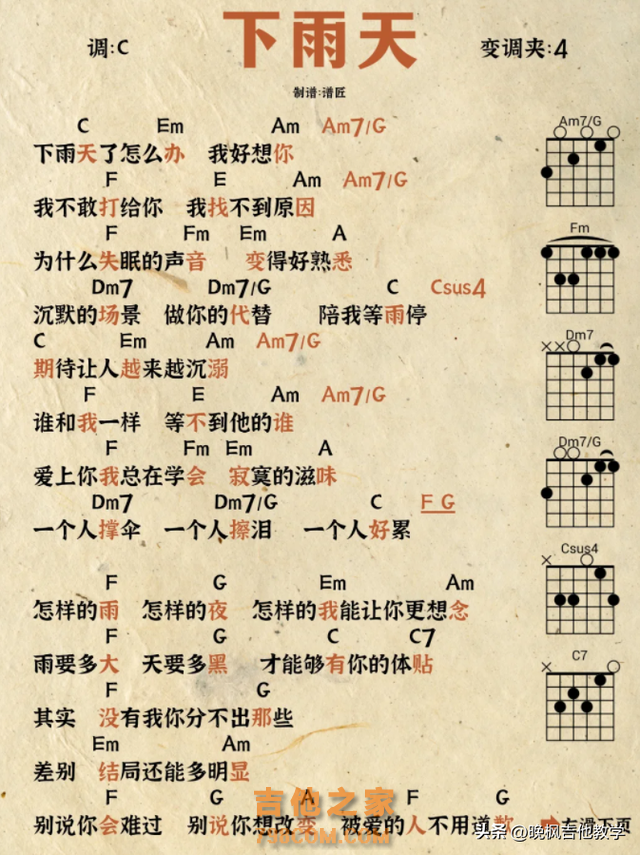 下雨天
调:C
变调夹:4
制谱:谱匠
C Em Am Am7/G
下雨天了怎么办 我好想你
F E Am Am7/G
我不敢打给你 我找不到原因
F Fm Em A
为什么失眠的声音 变得好熟悉
Dm7 Dm7/G C Csus4
沉默的场景 做你的代替 陪我等雨停
C Em Am Am7/G
期待让人越来越沉溺
F E Am Am7/G
谁和我一样 等不到他的谁
F Fm Em A
爱上你我总在学会 寂寞的滋味
Dm7 Dm7/G C F G
一个人撑伞 一个人擦泪 一个人好累
F G Em Am
怎样的雨 怎样的夜 怎样的我能让你更想念
F G C C7
雨要多大 天要多黑 才能够有你的体贴
F G
其实 没有我你分不出那些
Em Am
差别 结局还能多明显
F G A F G
别说你会难过 别说你想改变 被爱的人不用道歉 右滑下页
Am7/G
Fm
Dm7
Dm7/G
Csus4
C7
吉他之家
798COM.COM
头条 @晚枫吉他教学